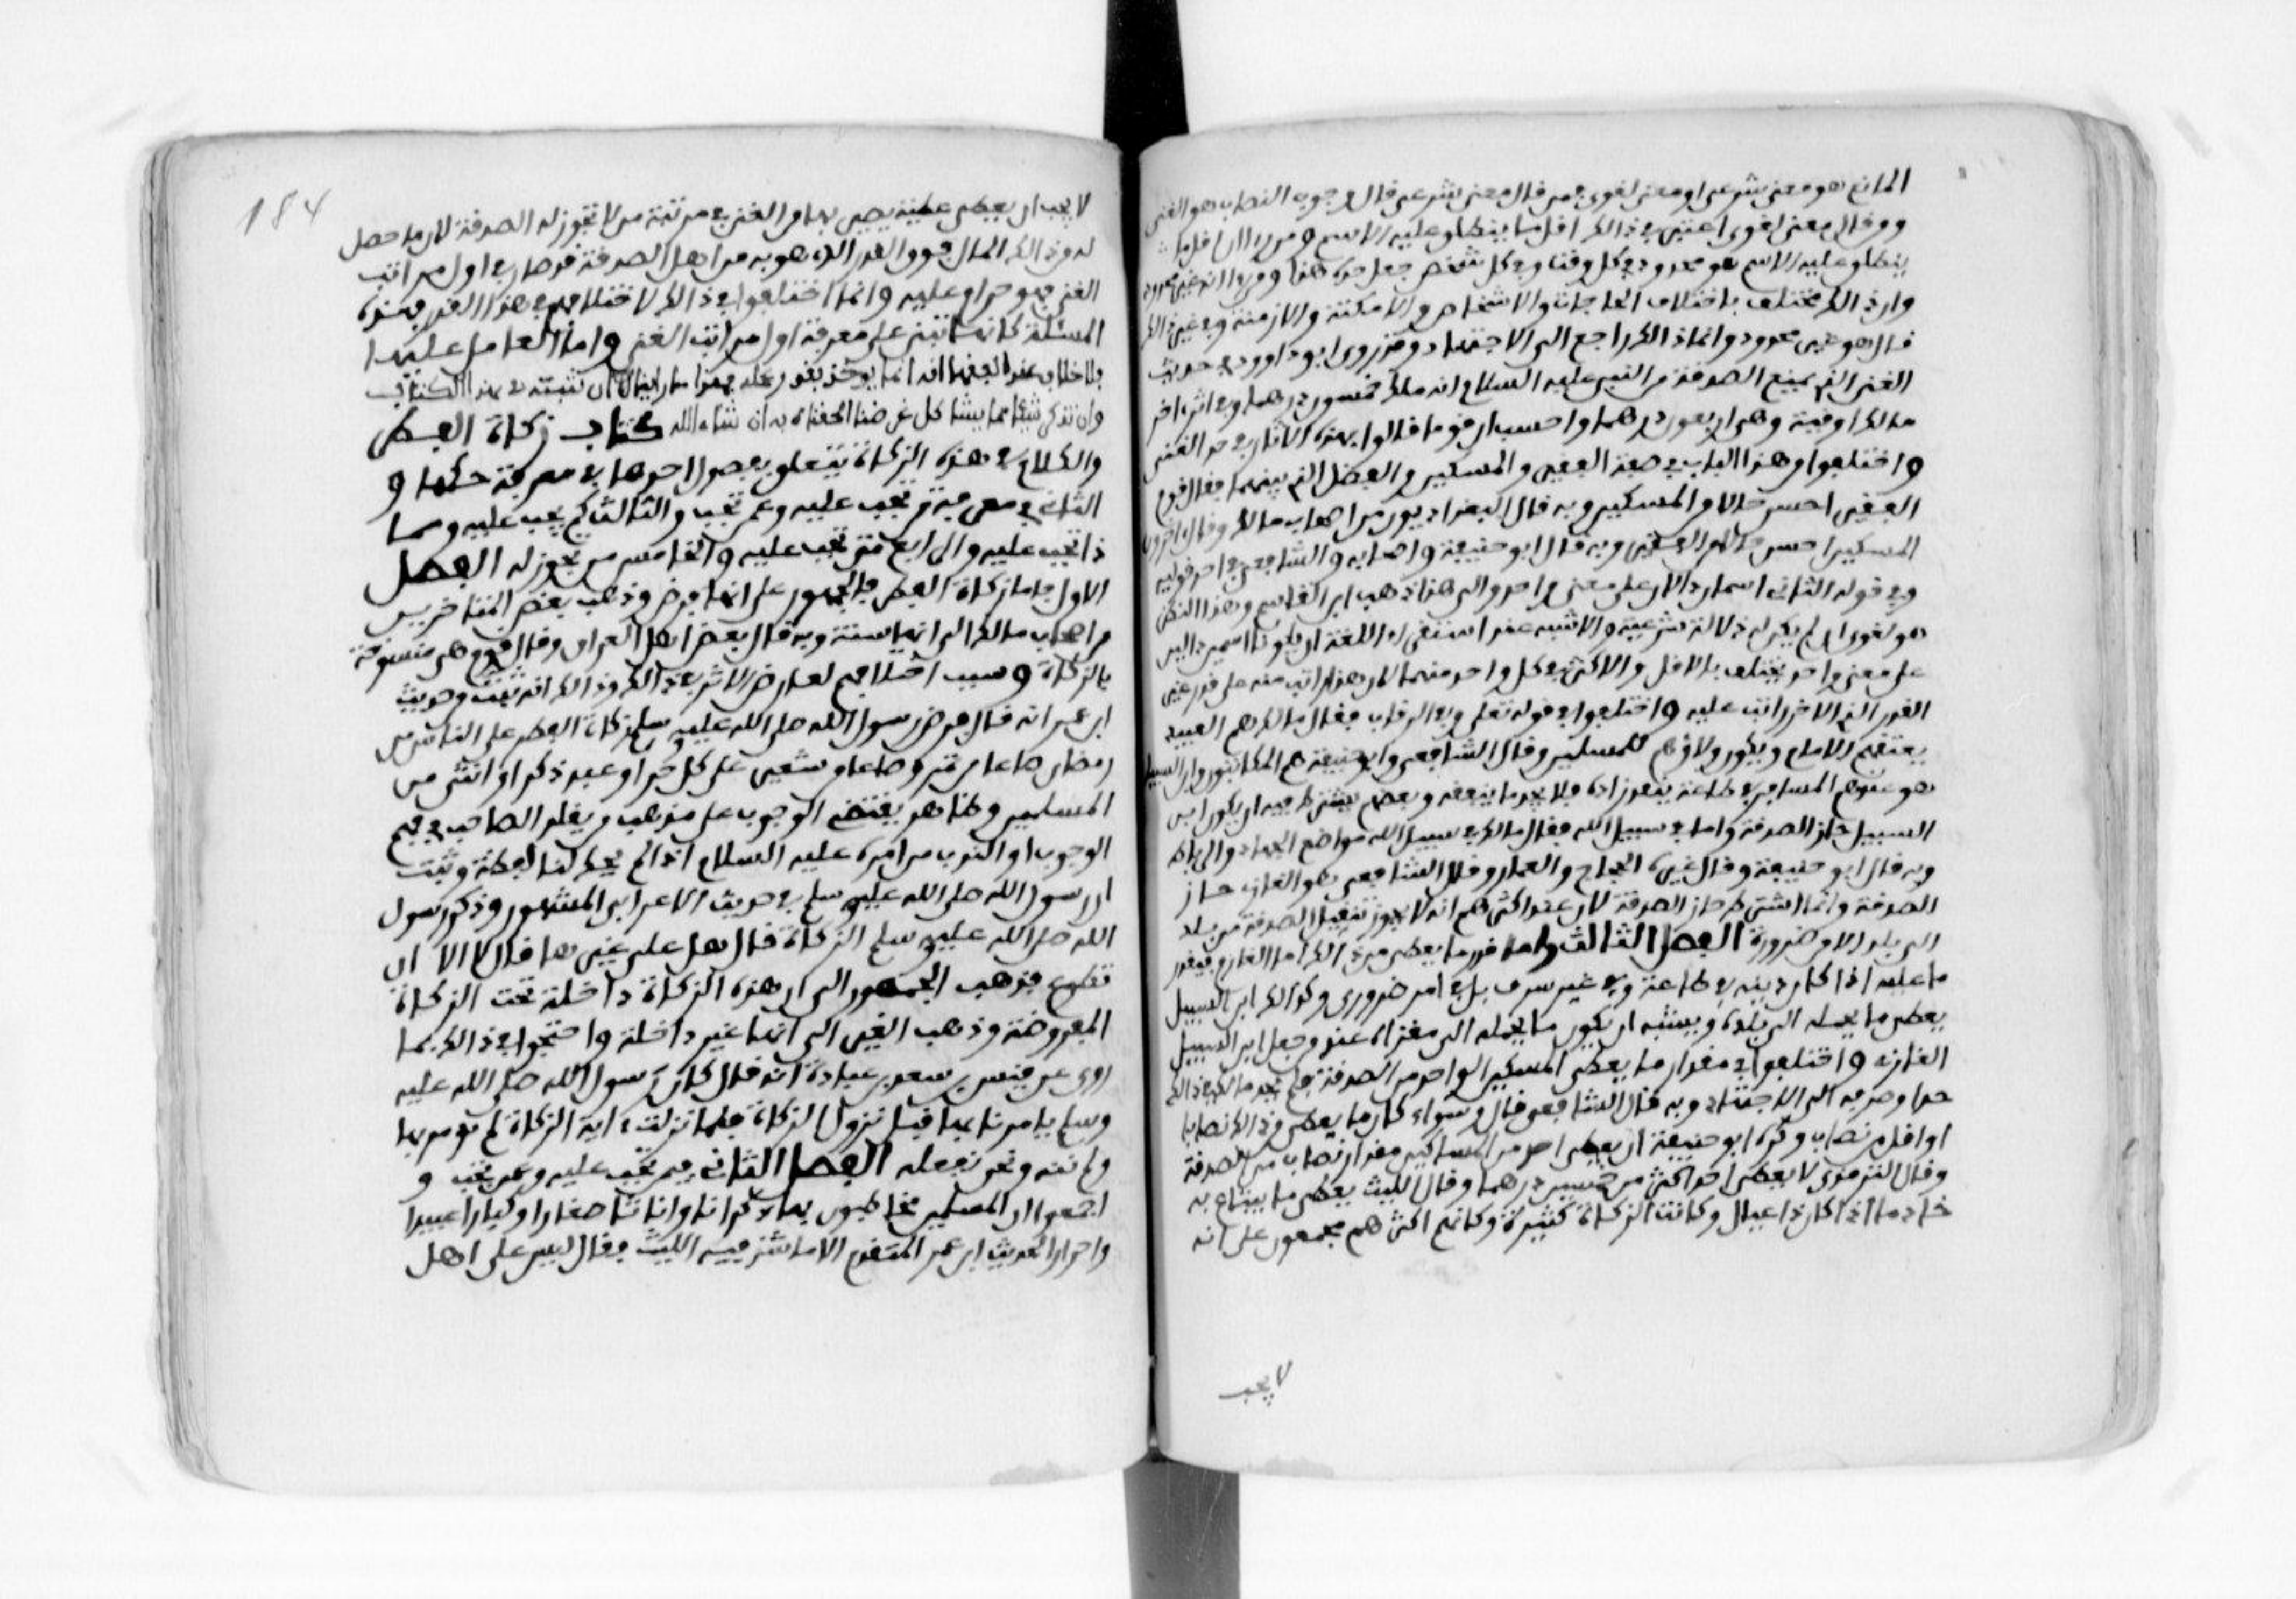 المانع هو معنى شرعي او معنى لغوي فمن قال معنى شرعي قال وجوب النصاب هو الغنى
ومن قال معنى لغوي اعتبر في ذلك اقل ما ينطلق عليه الاسم فمن راى ان اقل ما
ينطلق عليه الاسم هو محدود في كل وقت وفي كل شخص جعل حده هذا ومن راى انه غير محدود
وان ذلك مختلف باختلاف الحاجات والاشخاص والامكنة والازمنة وغير ذلك
قال هو غير محدود وانما ذلك راجع الى الاجتهاد وقد روى ابو داوود في حديث
الغنى الذي يمنع الصدقة عن النبي عليه السلام انه ملك خمسون درهما وفي اثر اخر
ملك اوقية وهي اربعون درهما واحسب ان قوما قالوا بهذه الاثار في حد الغنى
واختلفوا من هذا الباب في صفة الفقير والمسكين والفصل الذي بينهما فقال قوم
الفقير احسن حالا من المسكين وبه قال البغداديون من اصحاب مالك وقال اخرون
المسكين احسن حالا من الفقير وبه قال ابو حنيفة واصحابه والشافعي في احد قوليه
وفي قوله الثاني اسمان دالان على معنى واحد والى هذا ذهب ابن القاسم وهذا النظر
هو لغوي ان لم يكن له دلالة شرعية والاشبه عند استقراء اللغة ان يكونا اسمين دالين
على معنى واحد يختلف بالاقل والاكثر في كل واحد منهما لا ان هذا راتب منه على قدر غير
القدر الذي الاخر راتب عليه واختلفوا في قوله تعلى وفي الرقاب فقال مالك هم العبيد
يعتقهم الامام ويكون ولاؤهم للمسلمين وقال الشافعي وابو حنيفة هم المكاتبون وابن السبيل
هو عندهم المسافر في طاعة ينفد زاده فلا يجد ما ينفقه وبعضهم يشترط فيه ان يكون ابن
السبيل جار الصدقة واما في سبيل الله فقال مالك في سبيل الله مواضع الجهاد والرباط
وبه قال ابو حنيفة وقال غيره الحجاج والعمار وقال الشافعي هو الغازي جار
الصدقة وانما اشترط جار الصدقة لان عند اكثرهم انه لا يجوز تنقيل الصدقة من بلد
الى بلد الا من ضرورة الفصل الثالث واما قدر ما يعطى من ذلك اما الغارم فبقدر
ما عليه اذا كان دينه في طاعة وفي غير سرف بل في امر ضروري وكذلك ابن السبيل
يعطى ما يحمله الى بلده ويشبه ان يكون ما يحمله الى مغزاه عند من جعل ابن السبيل
الغازي واختلفوا في مقدار ما يعطى المسكين الواحد من الصدقة فلم يحد مالك في ذلك
حدا وصرفه الى الاجتهاد وبه قال الشافعي قال وسواء كان ما يعطى من ذلك نصابا
او اقل من نصاب وكره ابو حنيفة ان يعطى احد من المساكين مقدار نصاب من الصدقة
وقال الثوري لا يعطى احد اكثر من خمسين درهما وقال الليث يعطى ما يبتاع به
خادما اذا كان ذا عيال وكانت الزكاة كثيرة وكانهم اكثرهم مجمعون على انه
لا يجب
184
لا يجب ان يعطى عطية يصير بها من الغنى في مرتبة من لا تجوز له الصدقة لان ما حصل
له من ذلك المال فوق القدر الذي هو به من اهل الصدقة فرصار في اول مراتب
الغنى فهو حرام عليه وانما اختلفوا في ذلك لاختلافهم في هذا القدر فهذه
المسئلة كانها تبنى على معرفة اول مراتب الغنى واما العامل عليها
فلا خلاف عند الفقهاء انه انما يوخذ بقدر عمله فهذا ما راينا ان نثبته في هذا الكتاب
وان تذكرنا شيئا مما يشاكل غرضنا الحقناه به ان شاء الله كتاب زكاة الفطر
والكلام في هذه الزكاة يتعلق بفصول احدها في معرفة حكمها و
الثاني في معرفة من تجب عليه وعمن تجب والثالث كم يجب عليه ومما
ذا تجب عليه والرابع متى تجب عليه والخامس من تجوز له الفصل
الاول فاما زكاة الفطر فالجمهور على انها فرض وذهب بعض المتاخرين
من اصحاب مالك الى انها سنة وبه قال بعض اهل العراق وقال قوم هي منسوخة
بالزكاة وسبب اختلافهم تعارض الاثر في ذلك وذلك انه ثبت من حديث
ابن عمر انه قال فرض رسول الله صلى الله عليه وسلم زكاة الفطر على الناس من
رمضان صاعا من تمر وصاعا من شعير على كل حر او عبد ذكر او انثى من
المسلمين وظاهر يقتضي الوجوب على مذهب من يقلد الصاحب في فهم
الوجوب او الندب من امره عليه السلام اذا لم يحد لنا لفظه وثبت
ان رسول الله صلى الله عليه وسلم في حديث الاعرابي المشهور وذكر رسول
الله صلى الله عليه وسلم الزكاة قال هل علي غيرها قال لا الا ان
تطوع فذهب الجمهور الى ان هذه الزكاة داخلة تحت الزكاة
المفروضة وذهب الغير الى انها غير داخلة واحتجوا في ذلك بما
روي عن قيس بن سعد بن عبادة انه قال كان رسول الله صلى الله عليه
وسلم يامرنا بها قبل نزول الزكاة فلما نزلت اية الزكاة لم نومر بها
ولم ننه ونحن نفعله الفصل الثاني فيمن تجب عليه وعمن تجب و
اجمعوا ان المسلمين مخاطبون بها ذكرانا واناثا صغارا وكبارا عبيدا
واحرارا لحديث ابن عمر المتقدم الا ما شذ فيه الليث فقال ليس على اهل